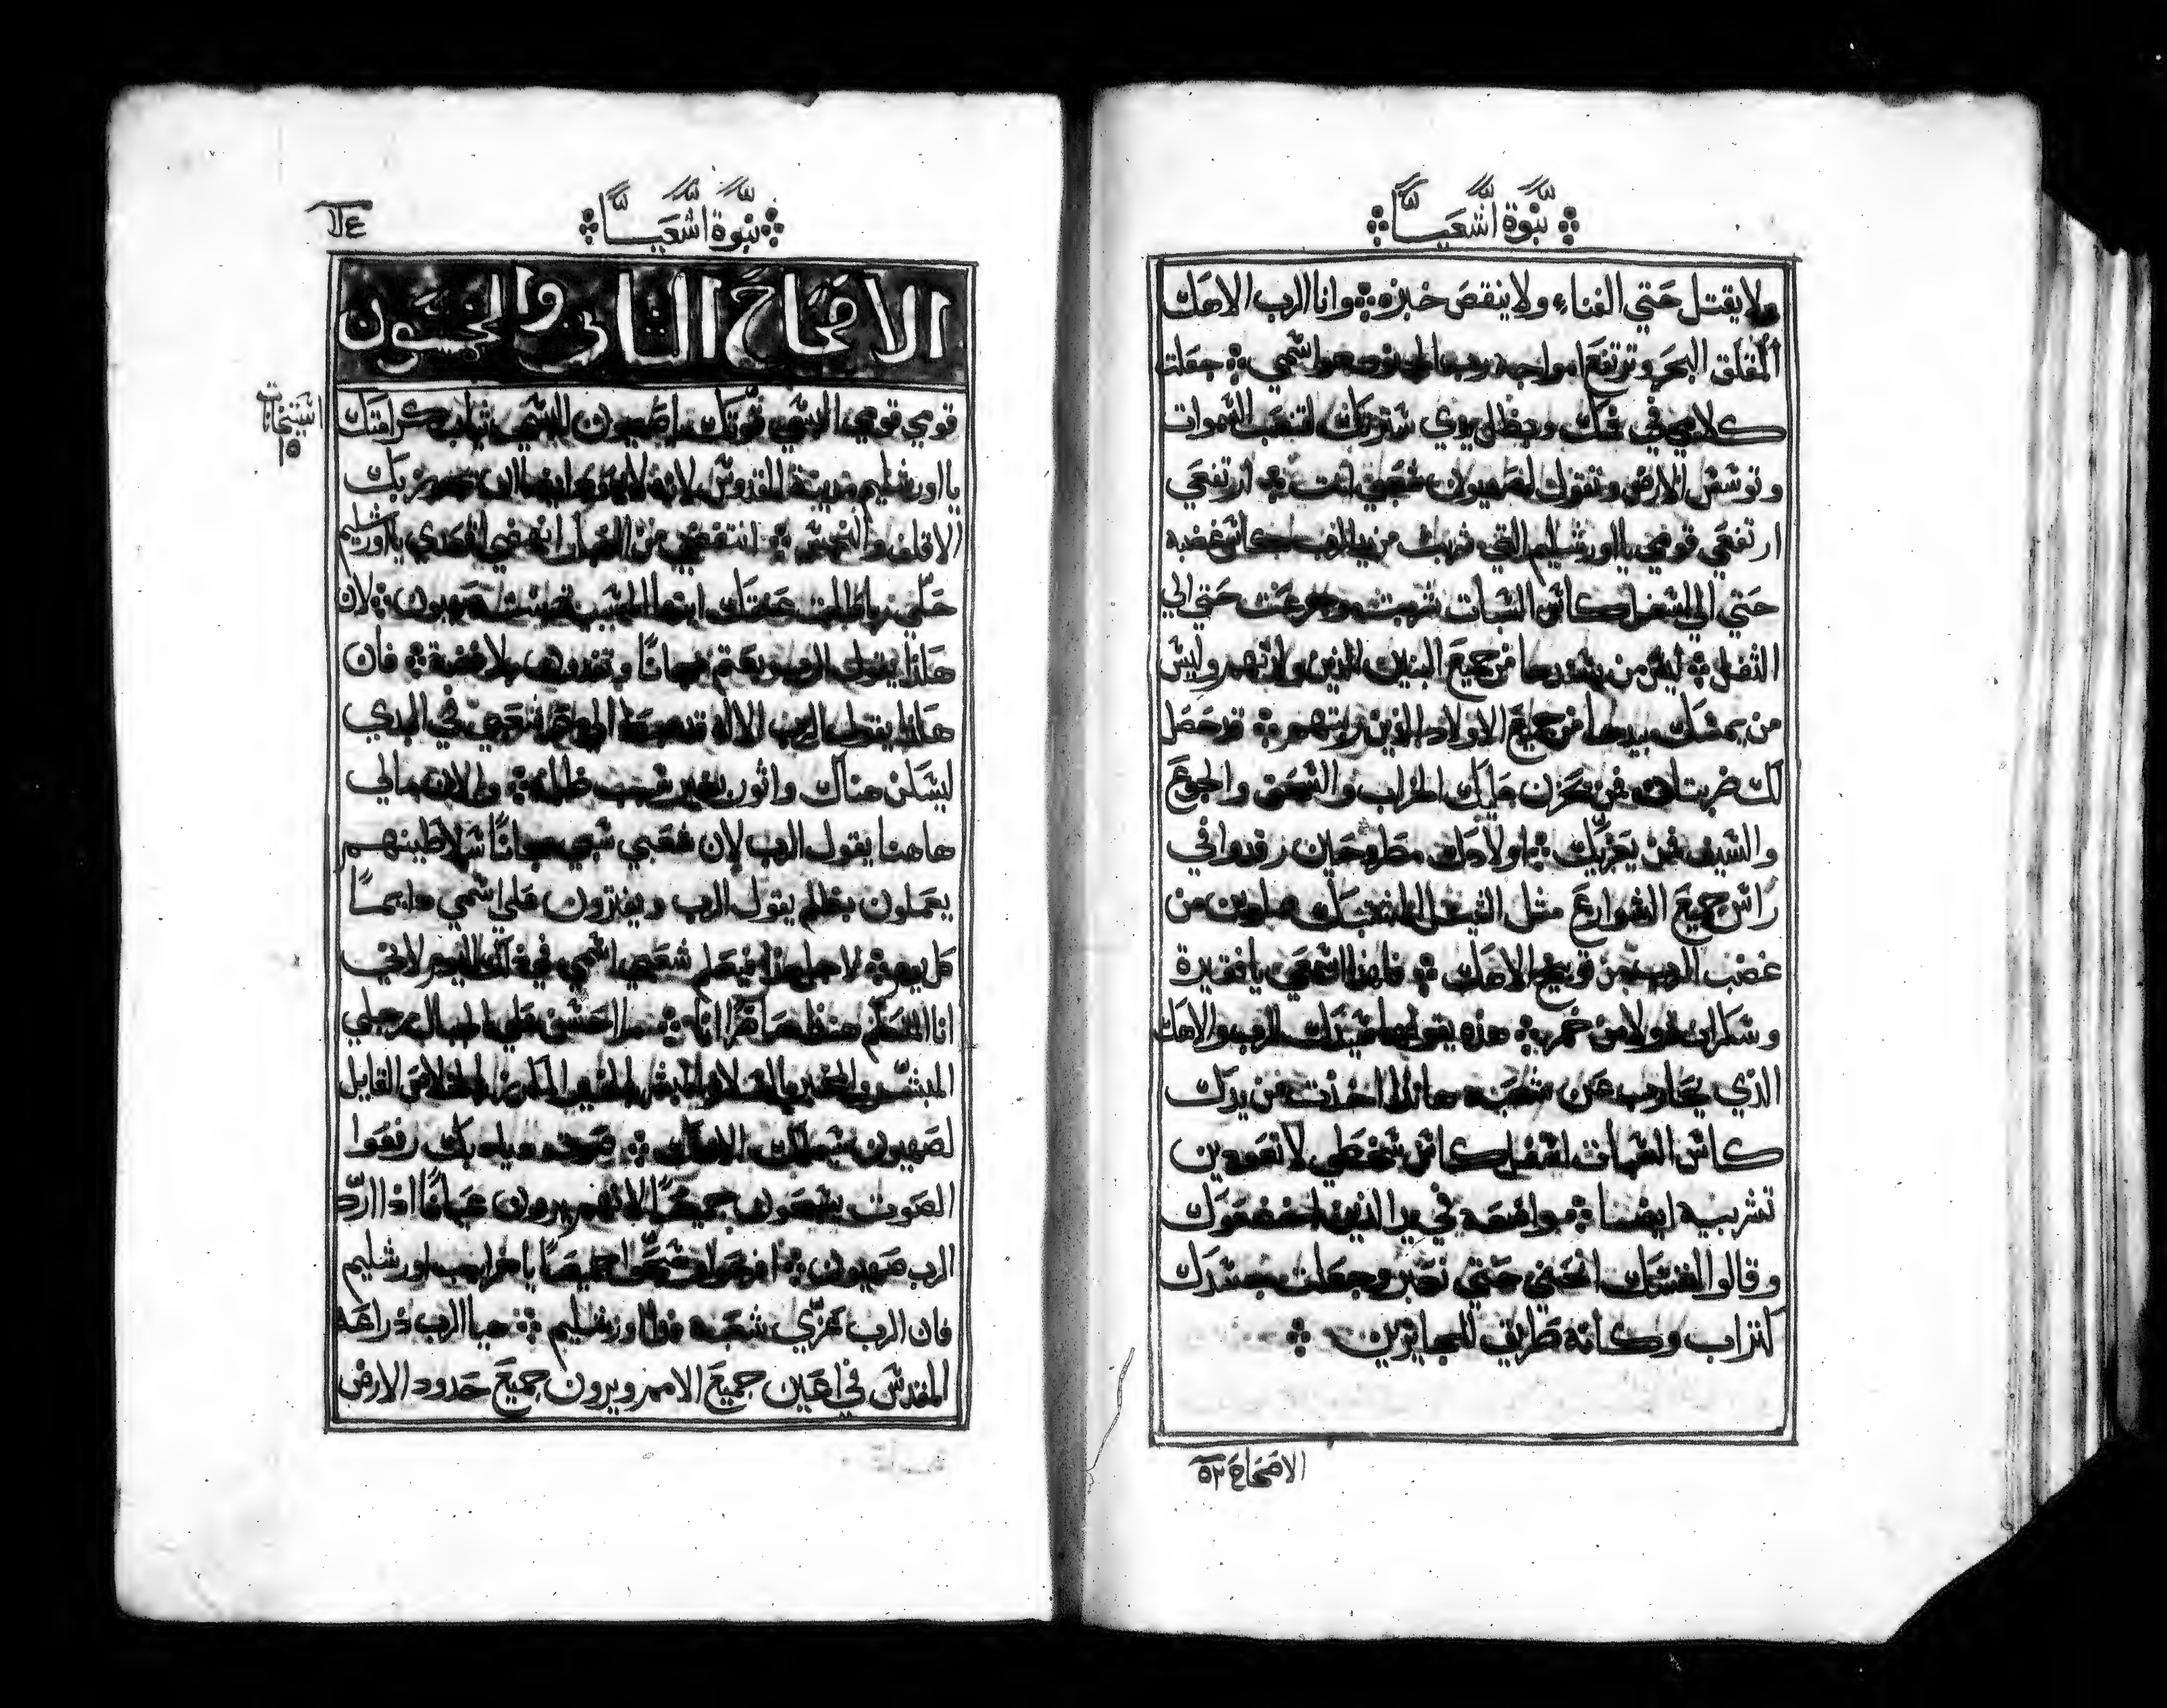 نبوة اشعيا
ولا يقتل حتي الفناء ولا ينقص خبزه وانا الرب الاهك
المقلق البحر وترتفع امواجه رب
كلامي في فمك وبظل يدي سترتك لتنصب السموات
وتوسس الارض وتقول لصهيون شعبي انت ارتفعي
ارتفعي قومي يا اورشليم التي شربت من يد الرب كاس غضبه
حتي الي اسفل كاس السبات شربت وجرعت حتي الي
الثفل ليس من يسندها من جميع البنين الذين ولدتهم وليس
من يمسك بيدها من جميع الاولاد الذين ربتهم قد حصل
لك ضربتان فمن يحزن عليك الخراب والسحق والجوع
والسيف فمن يعزيك اولادك مطروحين رقدوا في
راس جميع الشوارع مثل مملوين من
غضب الرب من توبيخ الاهك فلهذا اسمعي يا فقيرة
وسكرانه ولا من خمر هذه يقولها سيدك الرب والاهك
الذي يحارب عن شعبه هانذا اخذت من يدك
كاس السبات اسفل كاس سخطي لا تعودين
تشربيه ايضا واضعه في يد الذين اخضعوك
وقالوا لنفسك انحني حتي نعبر وجعلت جسدك
كتراب وكانه طريق للجايزين
الاصحاح ٥٢
نبوة اشعيا
١١٤
الاصحاح الثاني والخمسون
استيخانات
١٥
قومي قومي البسي قوتك يا صهيون البسي ثياب كرامتك
يا اورشليم مدينة القدوس لانه لا يعود ايضا ان يجوز بك
الاقلف والنجس انتفضي من الغبار انهضي اقعدي يا اورشليم
حلي رباطات عنقك ايتها المسبية بنت صهيون لان
هكذا يقول الرب بعتم مجانا وتفدون بلا فضة فان
هكذا يقول الرب الاله شعبي في البدي
ليسكن هناك واثور بغير سبب ظلمه والان مالي
هاهنا يقول الرب لان شعبي سبي مجانا سلاطينهم
يعملون بظلم يقول الرب ويفترون علي اسمي دايما
كل يوم لاجل هذا فيعلم شعبي اسمي في ذلك اليوم لاني
انا المتكلم هنذا حاضر انا ما احسن علي الجبال رجلي
المبشر والمخبر بالسلام المبشر بالخير المكرز بالخلاص القايل
لصهيون سيملك الاهك صوت رفعوا
الصوت يسبحون جميعا لانهم يرون عيانا اذا ارد
الرب صهيون افرحوا وسبحوا جميعا يا خرايب اورشليم
فان الرب عزي شعبه فدا اورشليم هيا الرب ذراعه
المقدس في اعين جميع الامم ويرون جميع حدود الارض